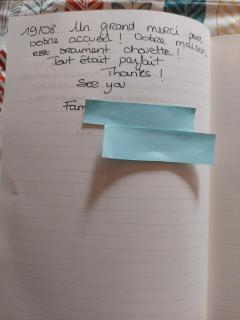 19/08 Un grand merci pour
votre accueil ! Votre maison
est vraiment chouette !
Tout était parfait
Thanks !
See you
Fam